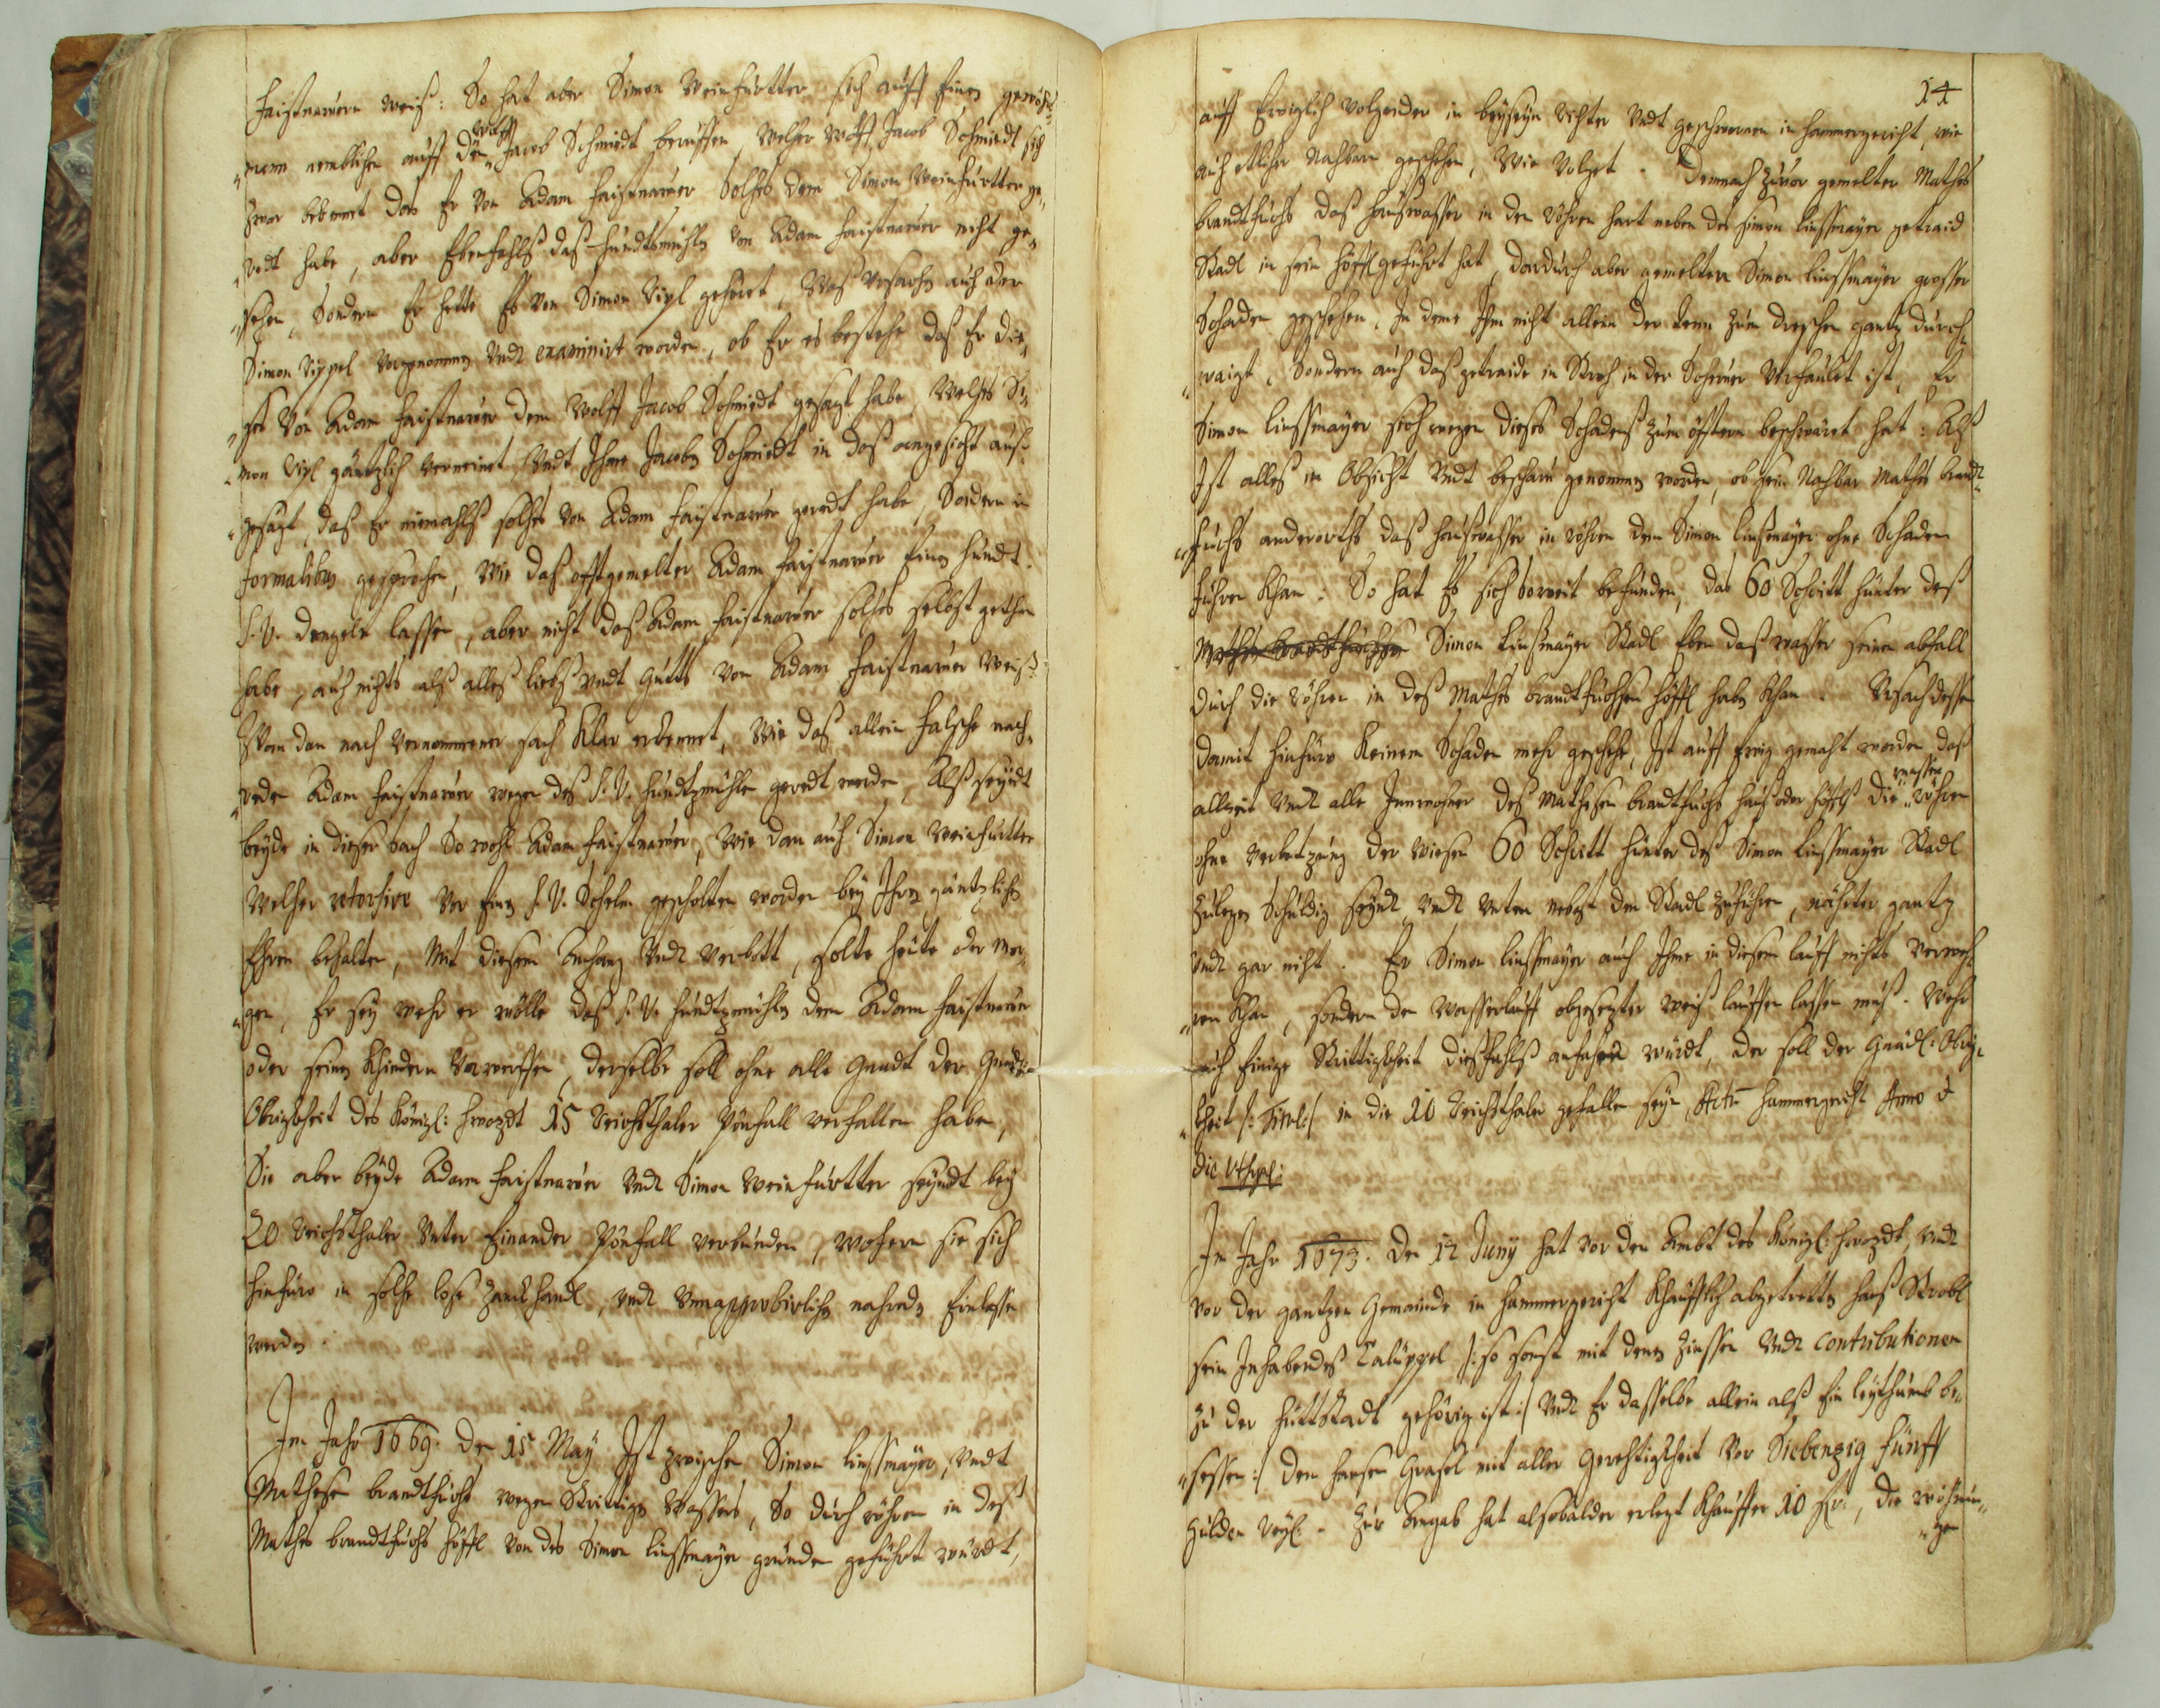 Faistnawern weiß: So hat aber Simon Weinfurtter sich auff Einen gewöhr„
„mann nemblichen auff den Wolff Jacob Schmiedt beruffen, Welcher Wolff Jacob Schmiedt sich
zwar bekennt das Er von Adam Faistnawer Solches dem Simon Weinfurtter ge„
„redt habe, aber Ebenfahlß daß hundtsmühln von Adam Faistnawer nicht ge„
„sehen, Sondern Er hette Es von Simon Vipl gehöret, Waß Ursachen auch der
Simon Vippel Vorgenomen Undt examinirt worden, ob Er es bestehe daß Er die„
„ses Von Adam Faistnawer dem Wolff Jacob Schmiedt gesagt habe, Welches Si„
„mon Vipl gäntzlich verneinet, Undt Ihme Jacoben Schmiedt in daß angesicht auß„
„gesagt, daß Er niemahlß solches von Adam Faistnawer geredt habe, Sondern in
formalibus gesprochen, Wie daß offtgemelter Adam Faistnawer Einen hundt
S. V. lassen, aber nicht daß Adam Faistnawer solches selbst gethan
habe, auch nichts alß alles liebß undt Gutts von Adam Faistnawer Weiß.
Wan dan nach vernommener sach Klar erkennet, Wie daß allein falsche nach„
„reden Adam Faistnawer wegen des S. V. hundtzmühln geredt worden, Alß seyndt
beyde in dieser sach So wohl Adam Faistnawer, Wie dan auch Simon Weinfurtter
Welcher Vor Einen S. V. Schelm gescholten worden bey Ihren gäntzlichen
Ehren behalten, Mit diesem Anhang Undt Verbott, solte heute oder mor„
„gen, Er sey wehr er wölle daß S. V. hundtzmühln dem Adam Faistnawer
oder seinen Khindern Vorwerffen, derselbe soll ohne alle Gnadt der Gnädigen
Obrigkheit des Königl: hwozdt 15 Reichsthaler Pönfall verfallen haben,
Sie aber beyde Adam Faistnawer Undt Simon Weinfurtter seyndt bey
20 Reichsthaler Unter Einander Pönfall verbunden, wofern sie sich
hinfüro in solche lose Zanckhandl, Undt Unnapprobirlichen nachreden Einlassen
werden.
Im Jahr 1669. Den 15 May Ist zwischen Simon Linssmayer, Undt
Mathesen Brandtfuchs wegen Strittigen Wassers, So durch röhren in deß
Mathes Brandtfuchs höffl von des Simon Linssmayer gründen geführt wurdt,
14
auff Ewiglich Volgender in beyseyn Richter Undt geschwornen in hammergericht, wie
auch etlicher Nachbarn geschehen, Wie Volget. Demnach zuvor gemelter Mathes
Brandtfuchs daß haußwasser in den röhren hart neben des Simon Linssmayer getraid
Stadl in sein höffl geführt hat, dardurch aber gemelten Simon Linssmayer grosser
Schaden geschehen, In deme Ihm nicht allein der tenn zum dreschen gantz durch„
„waigt, Sondern auch daß getraide in Stroh in der Scheuer Verfaulet ist, Er
Simon Linssmayer sich wegen dieses Schadenß zum öfftern beschwäret hat: Alß
Ist alles in Obsicht Undt beschaw genomen worden, ob sein Nachbar Mathes Brandt„
„fuchs anderorths daß haußwasser in röhren dem Simon Linßmayer ohne Schaden
führen Khan: So hat Es sich soweit befunden, das 60 Schritt hinter deß
Mathes Brandtfuchsen Simon Linßmayer Stadl Eben daß wasser seinen abfall
durch die röhren in deß Mathes Brandtfuchsen höffl haben Khan. Ursach dessen
damit hinfüro Keinem Schaden mehr geschehe, Ist auff Ewig gemacht worden, daß
allzeit Undt alle Innwohner des Mathesen Brandtfuchs hauß oder höffls die wasser röhren
ohne Verletzung der wiesen 60 Schritt hinter deß Simon Linssmayer Stadl
zulegen Schuldig seyndt, Undt Unten nebst den Stadl zuführen, nächter gantz
Undt gar nicht. Er Simon Linssmayer auch Ihme in diesem lauff nichts verweh„
„ren Khan, sondern den Wasserlauff obgesetzter weiß lauffen lassen muß. Wehr
auch Einige Strittigkheit dießfahlß anfahen würdt, der soll der Gnädl: Obrig„
„kheit /: Titul :/ in die 10 Reichsthaler gefallen seyn, Actum hammergericht Anno et
die Ut Supl:
Im Jahr 1673. Den 12 Juny hat vor den Ambt des Königl: hwozdt, Undt
vor der gantzen Gemainde in hammergericht Khäufflich abgetretten hanß Strobl
sein Inhabendeß Caluppel /: so sonst mit denen Zinssen Undt Contributionen
zu der hüttstadt gehörig ist :/ Undt Er dasselbe allein alß Ein leythumb be„
„sessen :/ den hansen Grasel mit aller Gerechtigkheit Vor Siebenzig fünff
gulden. Zur Angab hat alsobalden erlegt Khauffer 10 fl:, die
„gen